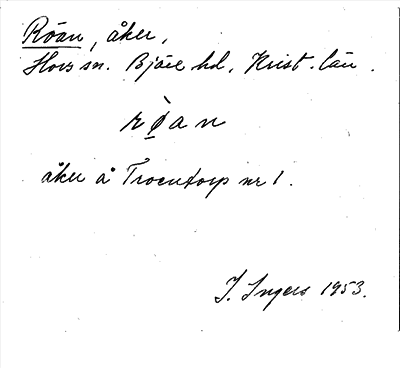 Röan, åker,
Hovs sn. Bjäre hd, Krist. län.
rø̀an
åker å Troentorp nr 1.
I. Ingers 1953.